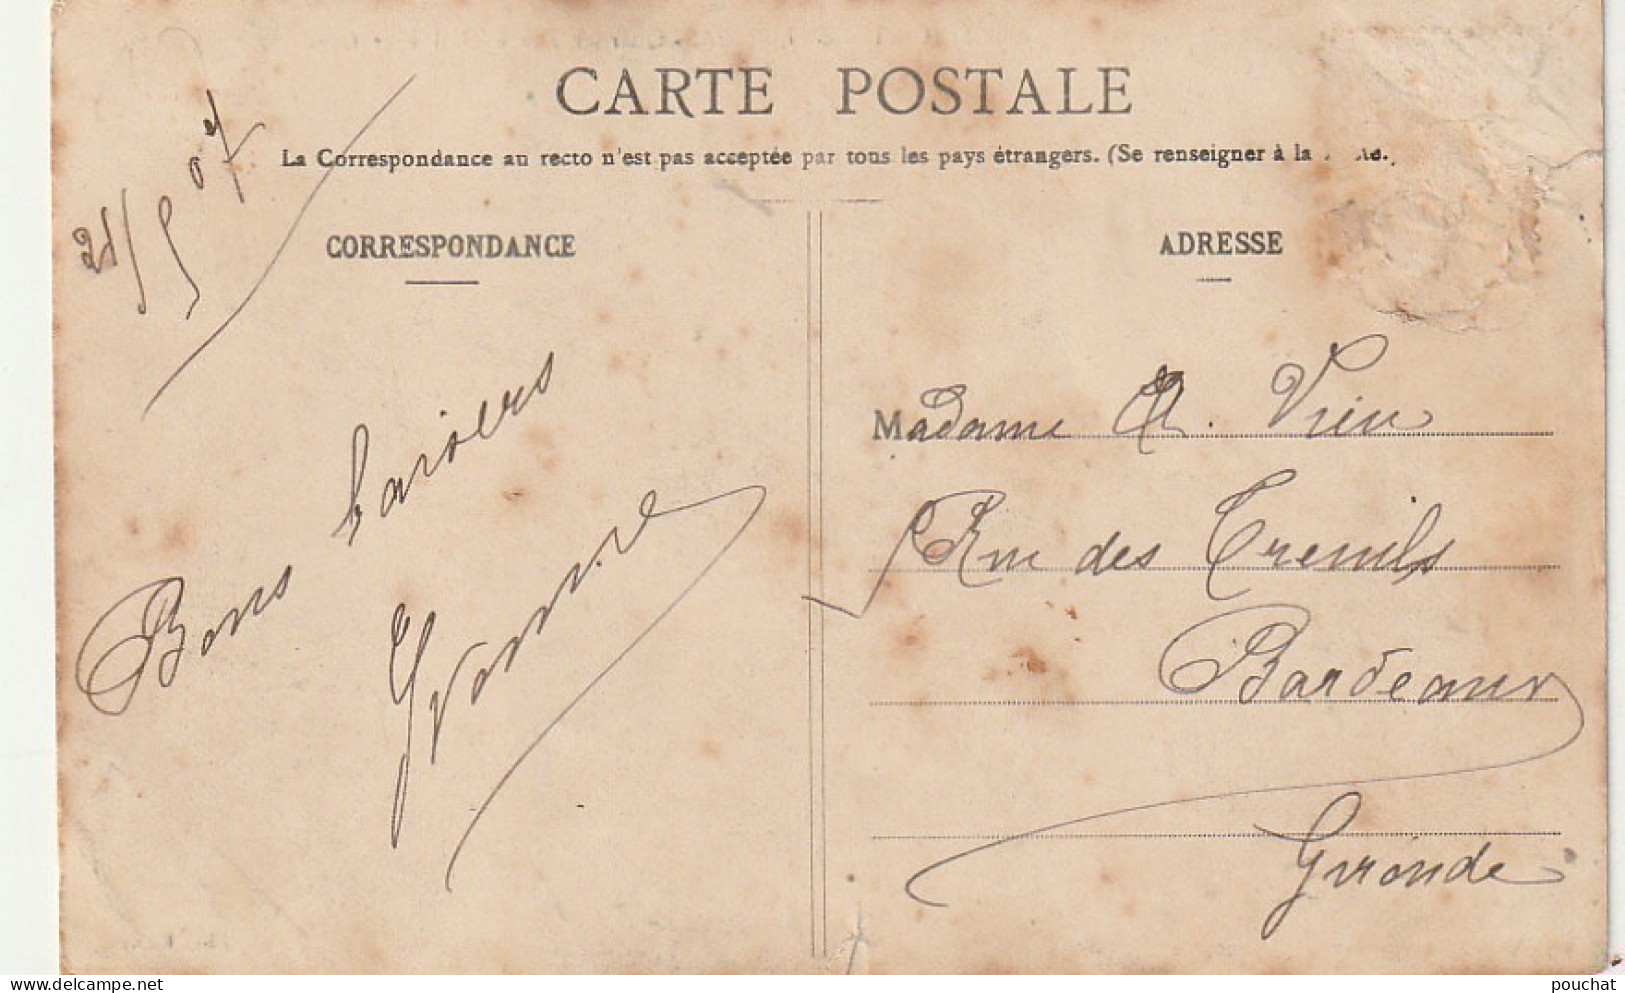 CARTE POSTALE
La Correspondance au recto n'est pas acceptée par tous les pays étrangers. (Se renseigner à la
CORRESPONDANCE
ADRESSE
21/5 07
Bons baisers
Yvonne
Madame A. Vieu
Rue des Treuils
Bordeaux
Gironde
delcampe.net
pouchat